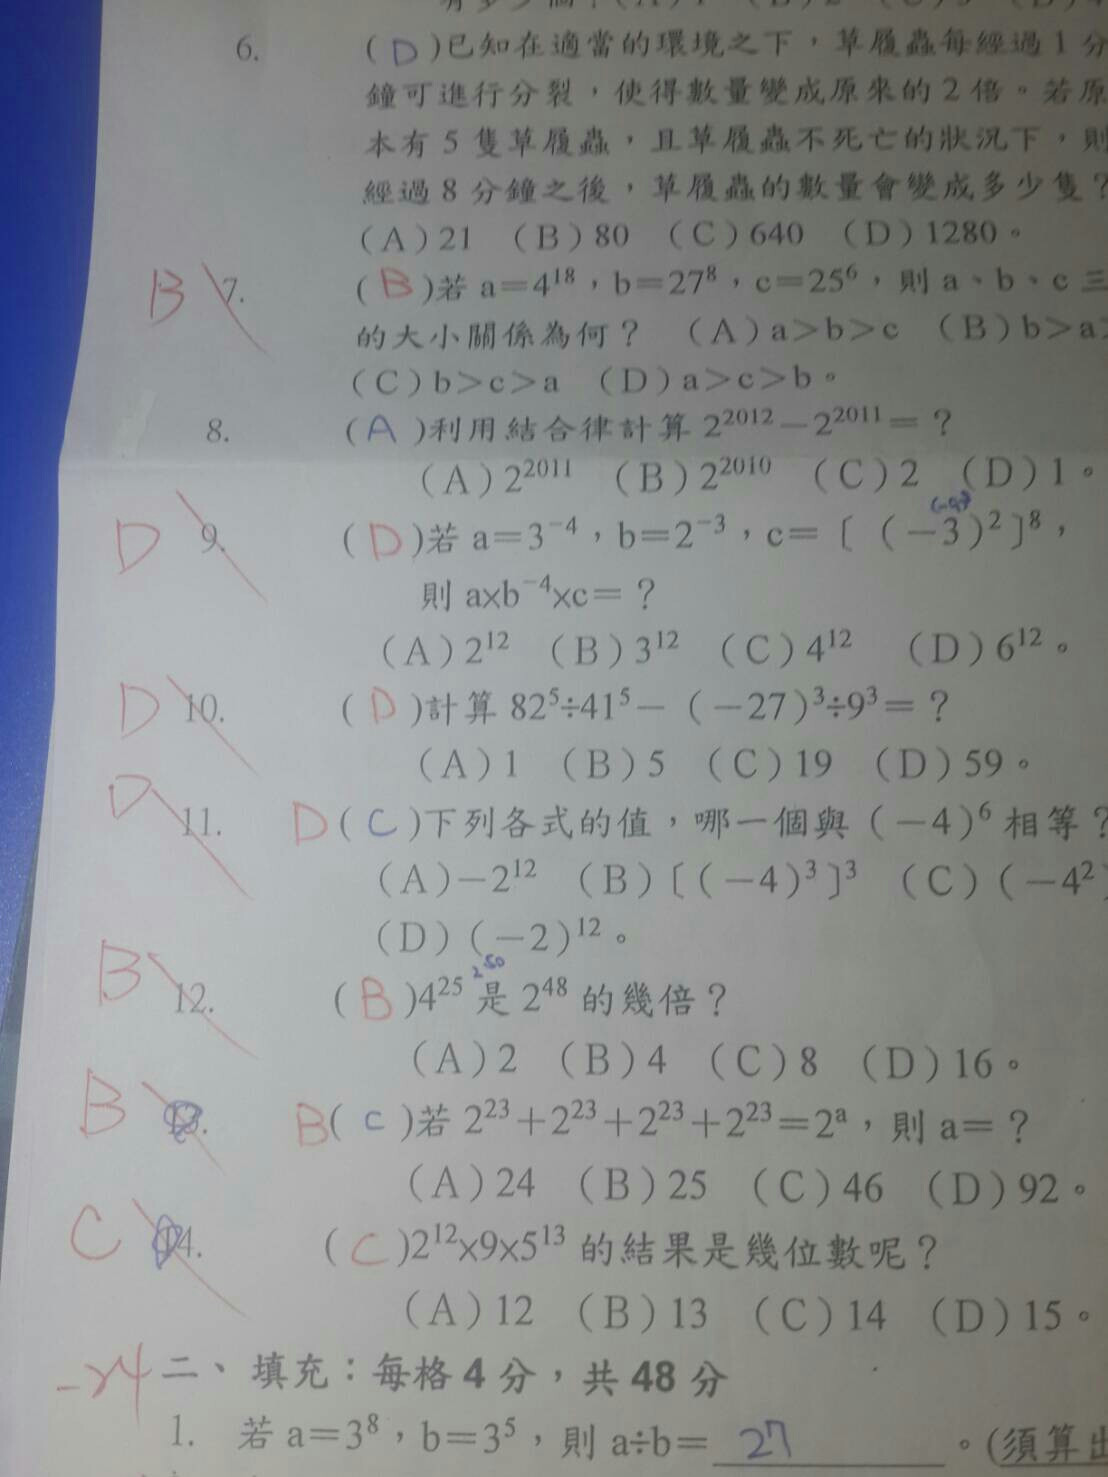 有多少個？(A)1 (B)2 (C)3 (D)4
6. (D)已知在適當的環境之下，草履蟲每經過1分
鐘可進行分裂，使得數量變成原來的2倍。若原
本有5隻草履蟲，且草履蟲不死亡的狀況下，則
經過8分鐘之後，草履蟲的數量會變成多少隻？
(A)21 (B)80 (C)640 (D)1280。
B 7. (B)若 a＝4¹⁸，b＝27⁸，c＝25⁶，則 a、b、c 三
的大小關係為何？ (A)a＞b＞c (B)b＞a＞
(C)b＞c＞a (D)a＞c＞b。
8. (A)利用結合律計算 2²⁰¹²－2²⁰¹¹＝？
(A)2²⁰¹¹ (B)2²⁰¹⁰ (C)2 (D)1。
D 9. (D)若 a＝3⁻⁴，b＝2⁻³，c＝〔(－3)²〕⁸，
則 a×b⁻⁴×c＝？
(A)2¹² (B)3¹² (C)4¹² (D)6¹²。
D 10. (D)計算 82⁵÷41⁵－(－27)³÷9³＝？
(A)1 (B)5 (C)19 (D)59。
D 11. D(C)下列各式的值，哪一個與(－4)⁶相等？
(A)－2¹² (B)〔(－4)³〕³ (C)(－4²)
(D)(－2)¹²。
2⁵⁰
B 12. (B)4²⁵是 2⁴⁸ 的幾倍？
(A)2 (B)4 (C)8 (D)16。
B 13. B(C)若 2²³＋2²³＋2²³＋2²³＝2ᵃ，則 a＝？
(A)24 (B)25 (C)46 (D)92。
C 14. (C)2¹²×9×5¹³ 的結果是幾位數呢？
(A)12 (B)13 (C)14 (D)15。
-24 二、填充：每格4分，共48分
1. 若 a＝3⁸，b＝3⁵，則 a÷b＝ 27 。(須算出